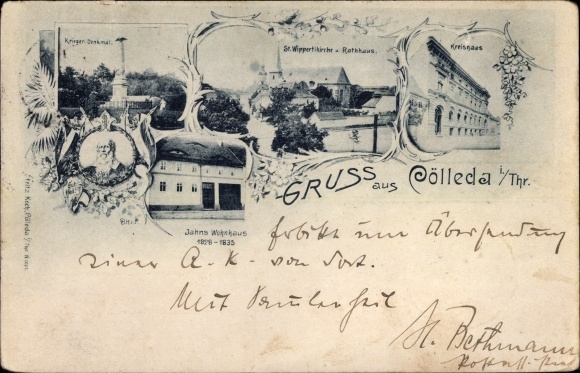 Krieger-Denkmal.
St. Wippertikirche u. Rathhaus.
Kreishaus
Jahns Wohnhaus
1828 - 1835
GRUSS aus Cölleda i/Thr.
Fritz Koch, Cölleda i/Thr.
Erbitte um Übersendung
einer A.-K. von dort.
Mit
H. Bethmann